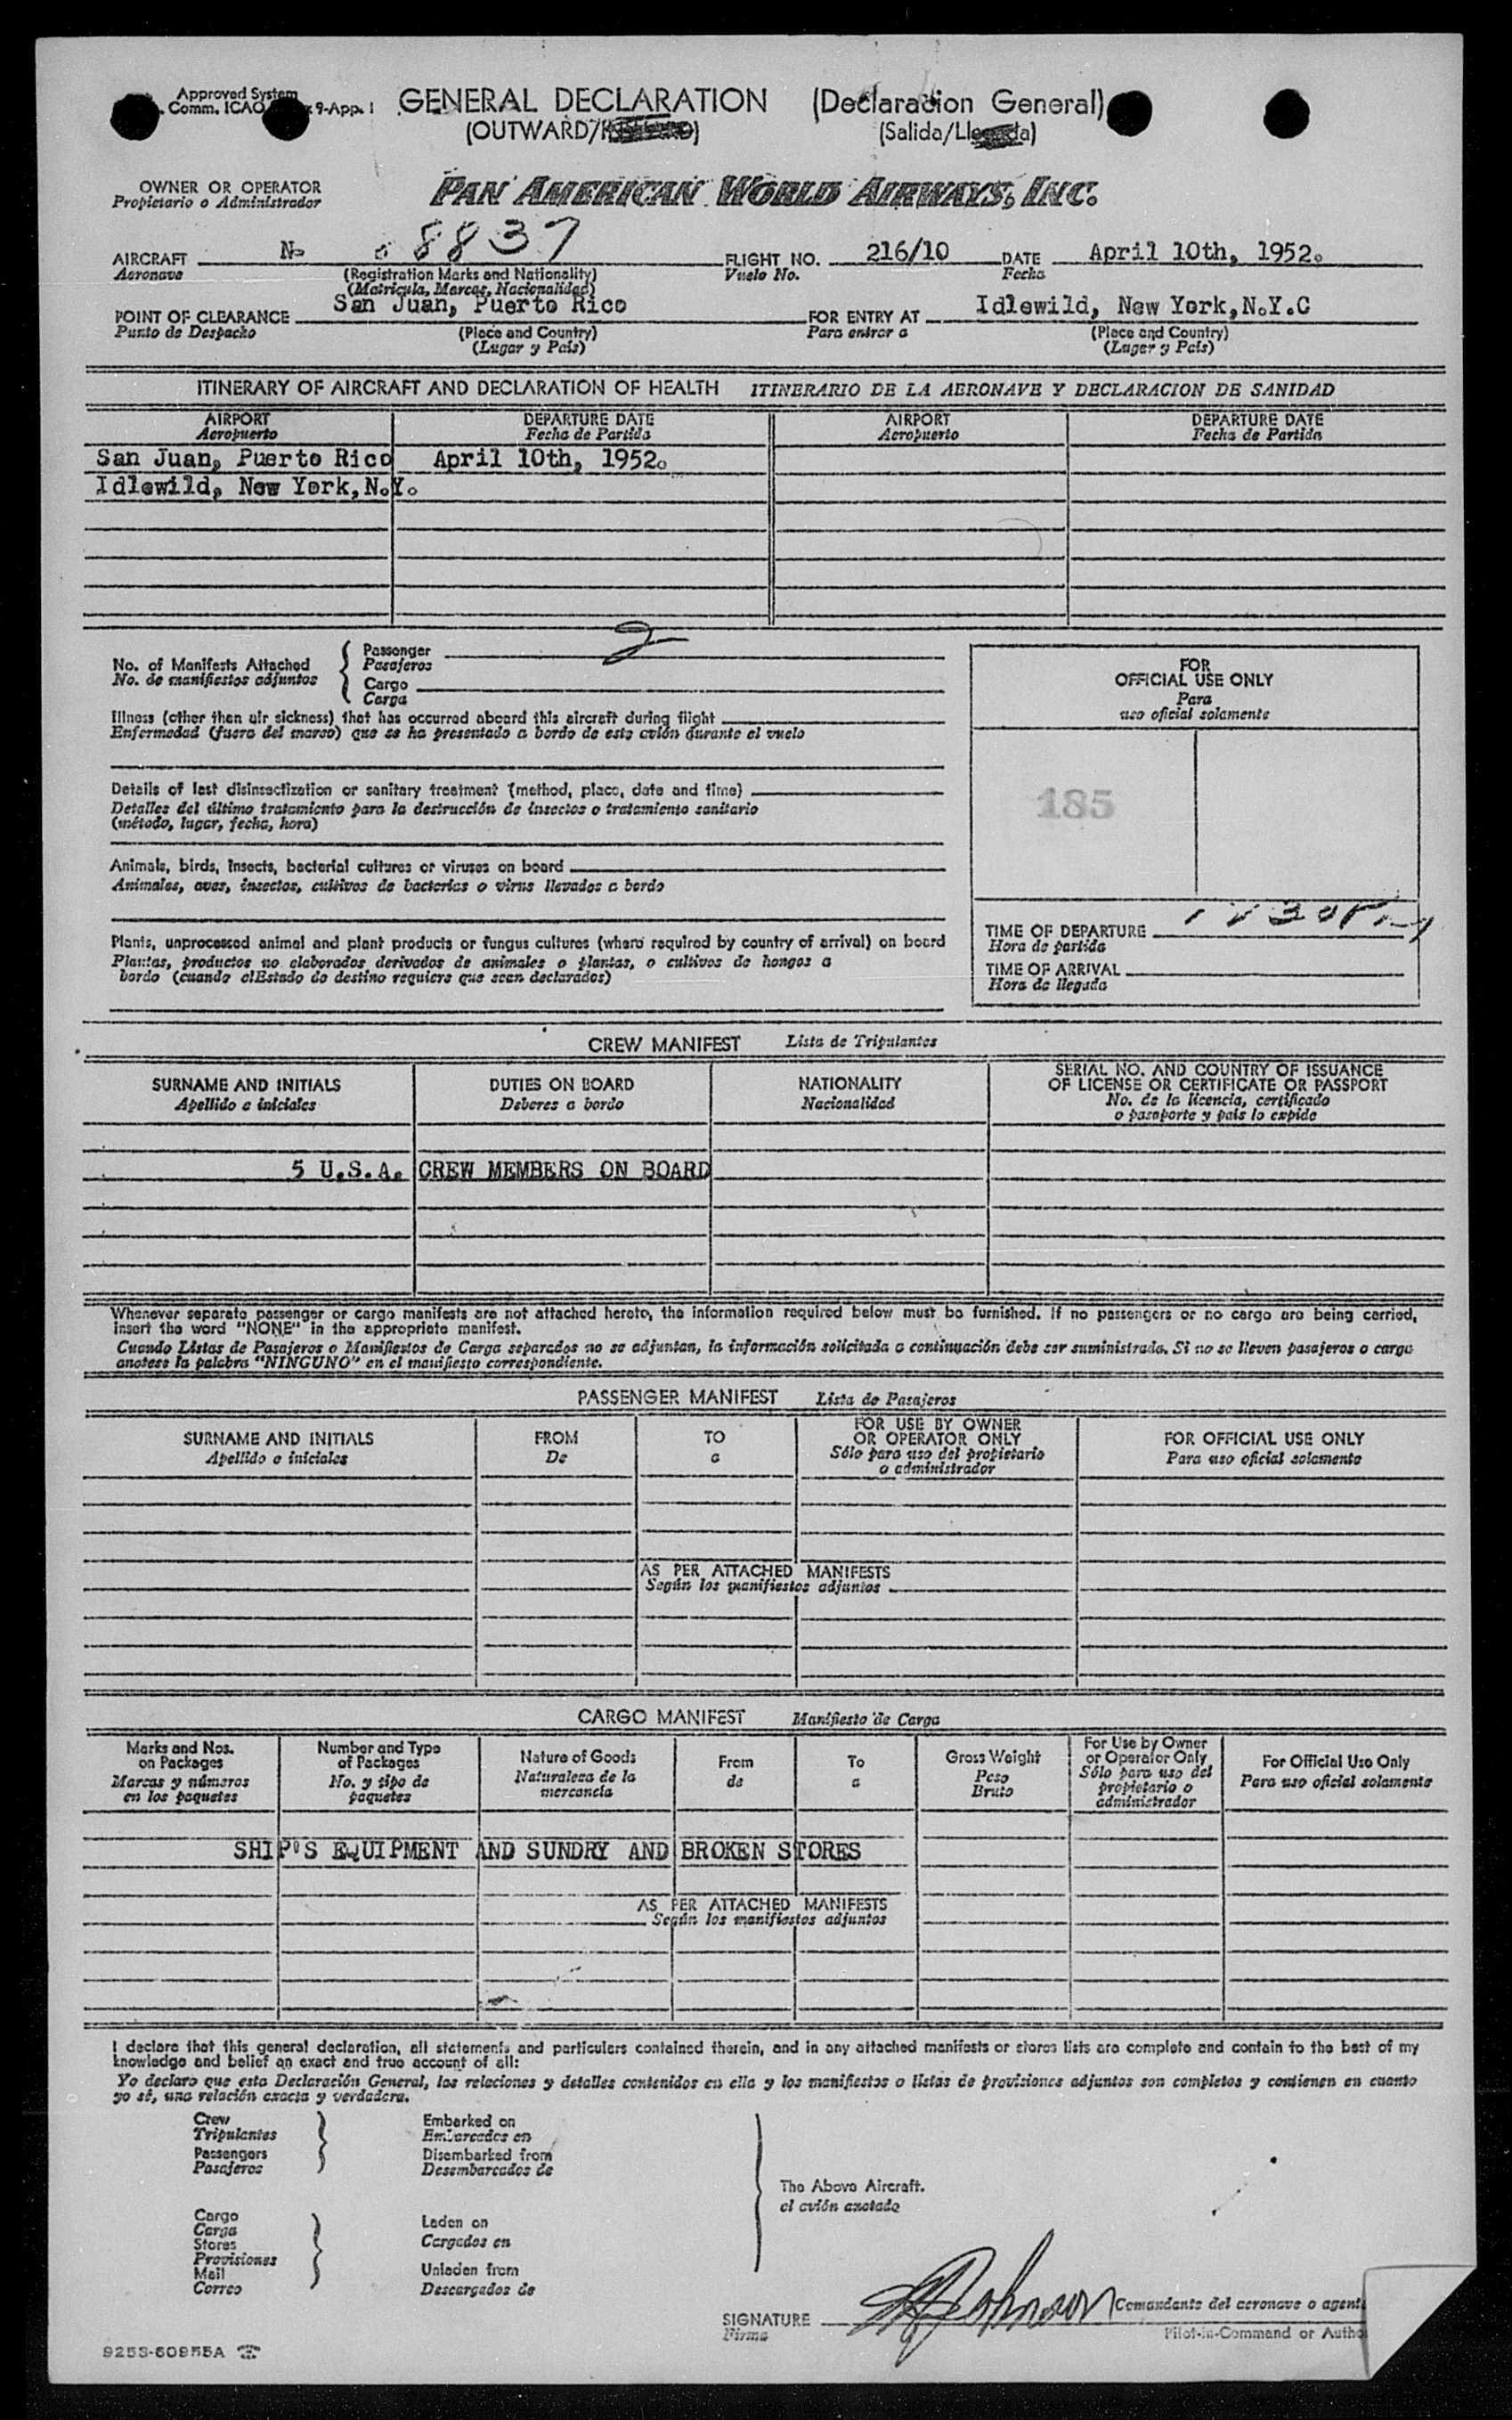 Approved System
Comm. ICAO 9-App. 1
GENERAL DECLARATION (Declaración General)
(OUTWARD/ ) (Salida/Llegada)
OWNER OR OPERATOR
Propietario o Administrador
PAN AMERICAN WORLD AIRWAYS, INC.
AIRCRAFT N- 8837 FLIGHT NO. 216/10 DATE April 10th, 1952.
Aeronave (Registration Marks and Nationality) Vuelo No. Fecha
(Matricula, Marcas, Nacionalidad)
POINT OF CLEARANCE San Juan, Puerto Rico FOR ENTRY AT Idlewild, New York,N.Y.C
Punto de Despacho (Place and Country) Para entrar a (Place and Country)
(Lugar y País) (Lugar y País)
ITINERARY OF AIRCRAFT AND DECLARATION OF HEALTH ITINERARIO DE LA AERONAVE Y DECLARACION DE SANIDAD
AIRPORT DEPARTURE DATE AIRPORT DEPARTURE DATE
Aeropuerto Fecha de Partida Aeropuerto Fecha de Partida
San Juan, Puerto Rico April 10th, 1952.
Idlewild, New York,N.Y.
No. of Manifests Attached
No. de manifiestos adjuntos
Passenger 2
Pasajeros
Cargo
Carga
Illness (other than air sickness) that has occurred aboard this aircraft during flight
Enfermedad (fuera del mareo) que se ha presentado a bordo de este avión durante el vuelo
Details of last disinsectization or sanitary treatment (method, place, date and time)
Detalles del último tratamiento para la destrucción de insectos o tratamiento sanitario
(método, lugar, fecha, hora)
Animals, birds, insects, bacterial cultures or viruses on board
Animales, aves, insectos, cultivos de bacterias o virus llevados a bordo
Plants, unprocessed animal and plant products or fungus cultures (where required by country of arrival) on board
Plantas, productos no elaborados derivados de animales o plantas, o cultivos de hongos a
bordo (cuando elEstado de destino requiere que sean declarados)
FOR
OFFICIAL USE ONLY
Para
uso oficial solamente
185
TIME OF DEPARTURE
Hora de partida
TIME OF ARRIVAL
Hora de llegada
CREW MANIFEST Lista de Tripulantes
SURNAME AND INITIALS DUTIES ON BOARD NATIONALITY SERIAL NO. AND COUNTRY OF ISSUANCE
OF LICENSE OR CERTIFICATE OR PASSPORT
Apellido e iniciales Deberes a bordo Nacionalidad No. de la licencia, certificado
o pasaporte y país lo expide
5 U.S.A. CREW MEMBERS ON BOARD
Whenever separate passenger or cargo manifests are not attached hereto, the information required below must be furnished. If no passengers or no cargo are being carried,
insert the word "NONE" in the appropriate manifest.
Cuando Listas de Pasajeros o Manifiestos de Carga separados no se adjuntan, la información solicitada a continuación debe ser suministrada. Si no se lleven pasajeros o carga
anotese la palabra "NINGUNO" en el manifiesto correspondiente.
PASSENGER MANIFEST Lista de Pasajeros
SURNAME AND INITIALS FROM TO FOR USE BY OWNER
OR OPERATOR ONLY FOR OFFICIAL USE ONLY
Apellido e iniciales De a Sólo para uso del propietario
o administrador Para uso oficial solamente
AS PER ATTACHED MANIFESTS
Según los manifiestos adjuntos
CARGO MANIFEST Manifiesto de Carga
Marks and Nos.
on Packages
Marcas y números
en los paquetes
Number and Type
of Packages
No. y tipo de
paquetes
Nature of Goods
Naturaleza de la
mercancía
From
de
To
a
Gross Weight
Peso
Bruto
For Use by Owner
or Operator Only
Sólo para uso del
propietario o
administrador
For Official Use Only
Para uso oficial solamente
SHIP'S EQUIPMENT AND SUNDRY AND BROKEN STORES
AS PER ATTACHED MANIFESTS
Según los manifiestos adjuntos
I declare that this general declaration, all statements and particulars contained therein, and in any attached manifests or stores lists are complete and contain to the best of my
knowledge and belief an exact and true account of all:
Yo declaro que esta Declaración General, las relaciones y detalles contenidos en ella y los manifiestos o listas de provisiones adjuntos son completos y contienen en cuanto
yo sé, una relación exacta y verdadera.
Crew
Tripulantes
Passengers
Pasajeros
Embarked on
Embarcados en
Disembarked from
Desembarcados de
The Above Aircraft.
el avión anotado
Cargo
Carga
Stores
Provisiones
Mail
Correo
Laden on
Cargados en
Unladen from
Descargados de
SIGNATURE Johnson Comandante del aeronave o agent
Firma Pilot-in-Command or Autho
9253-60955A